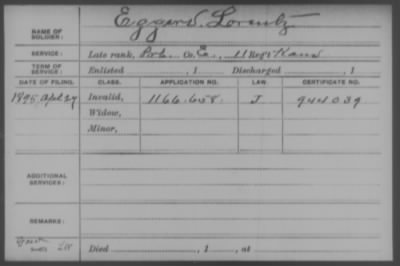 NAME OF SOLDIER: Eggers, Lorentz
SERVICE: Late rank, Pvt. Co. E, 11 Reg't Kans
TERM OF SERVICE: Enlisted, 1 Discharged, 1
DATE OF FILING. CLASS. APPLICATION NO. LAW. CERTIFICATE NO.
1895 Apl 27 Invalid, 1166.658. J 944039
Widow,
Minor,
ADDITIONAL SERVICES:
REMARKS:
Died, 1, at